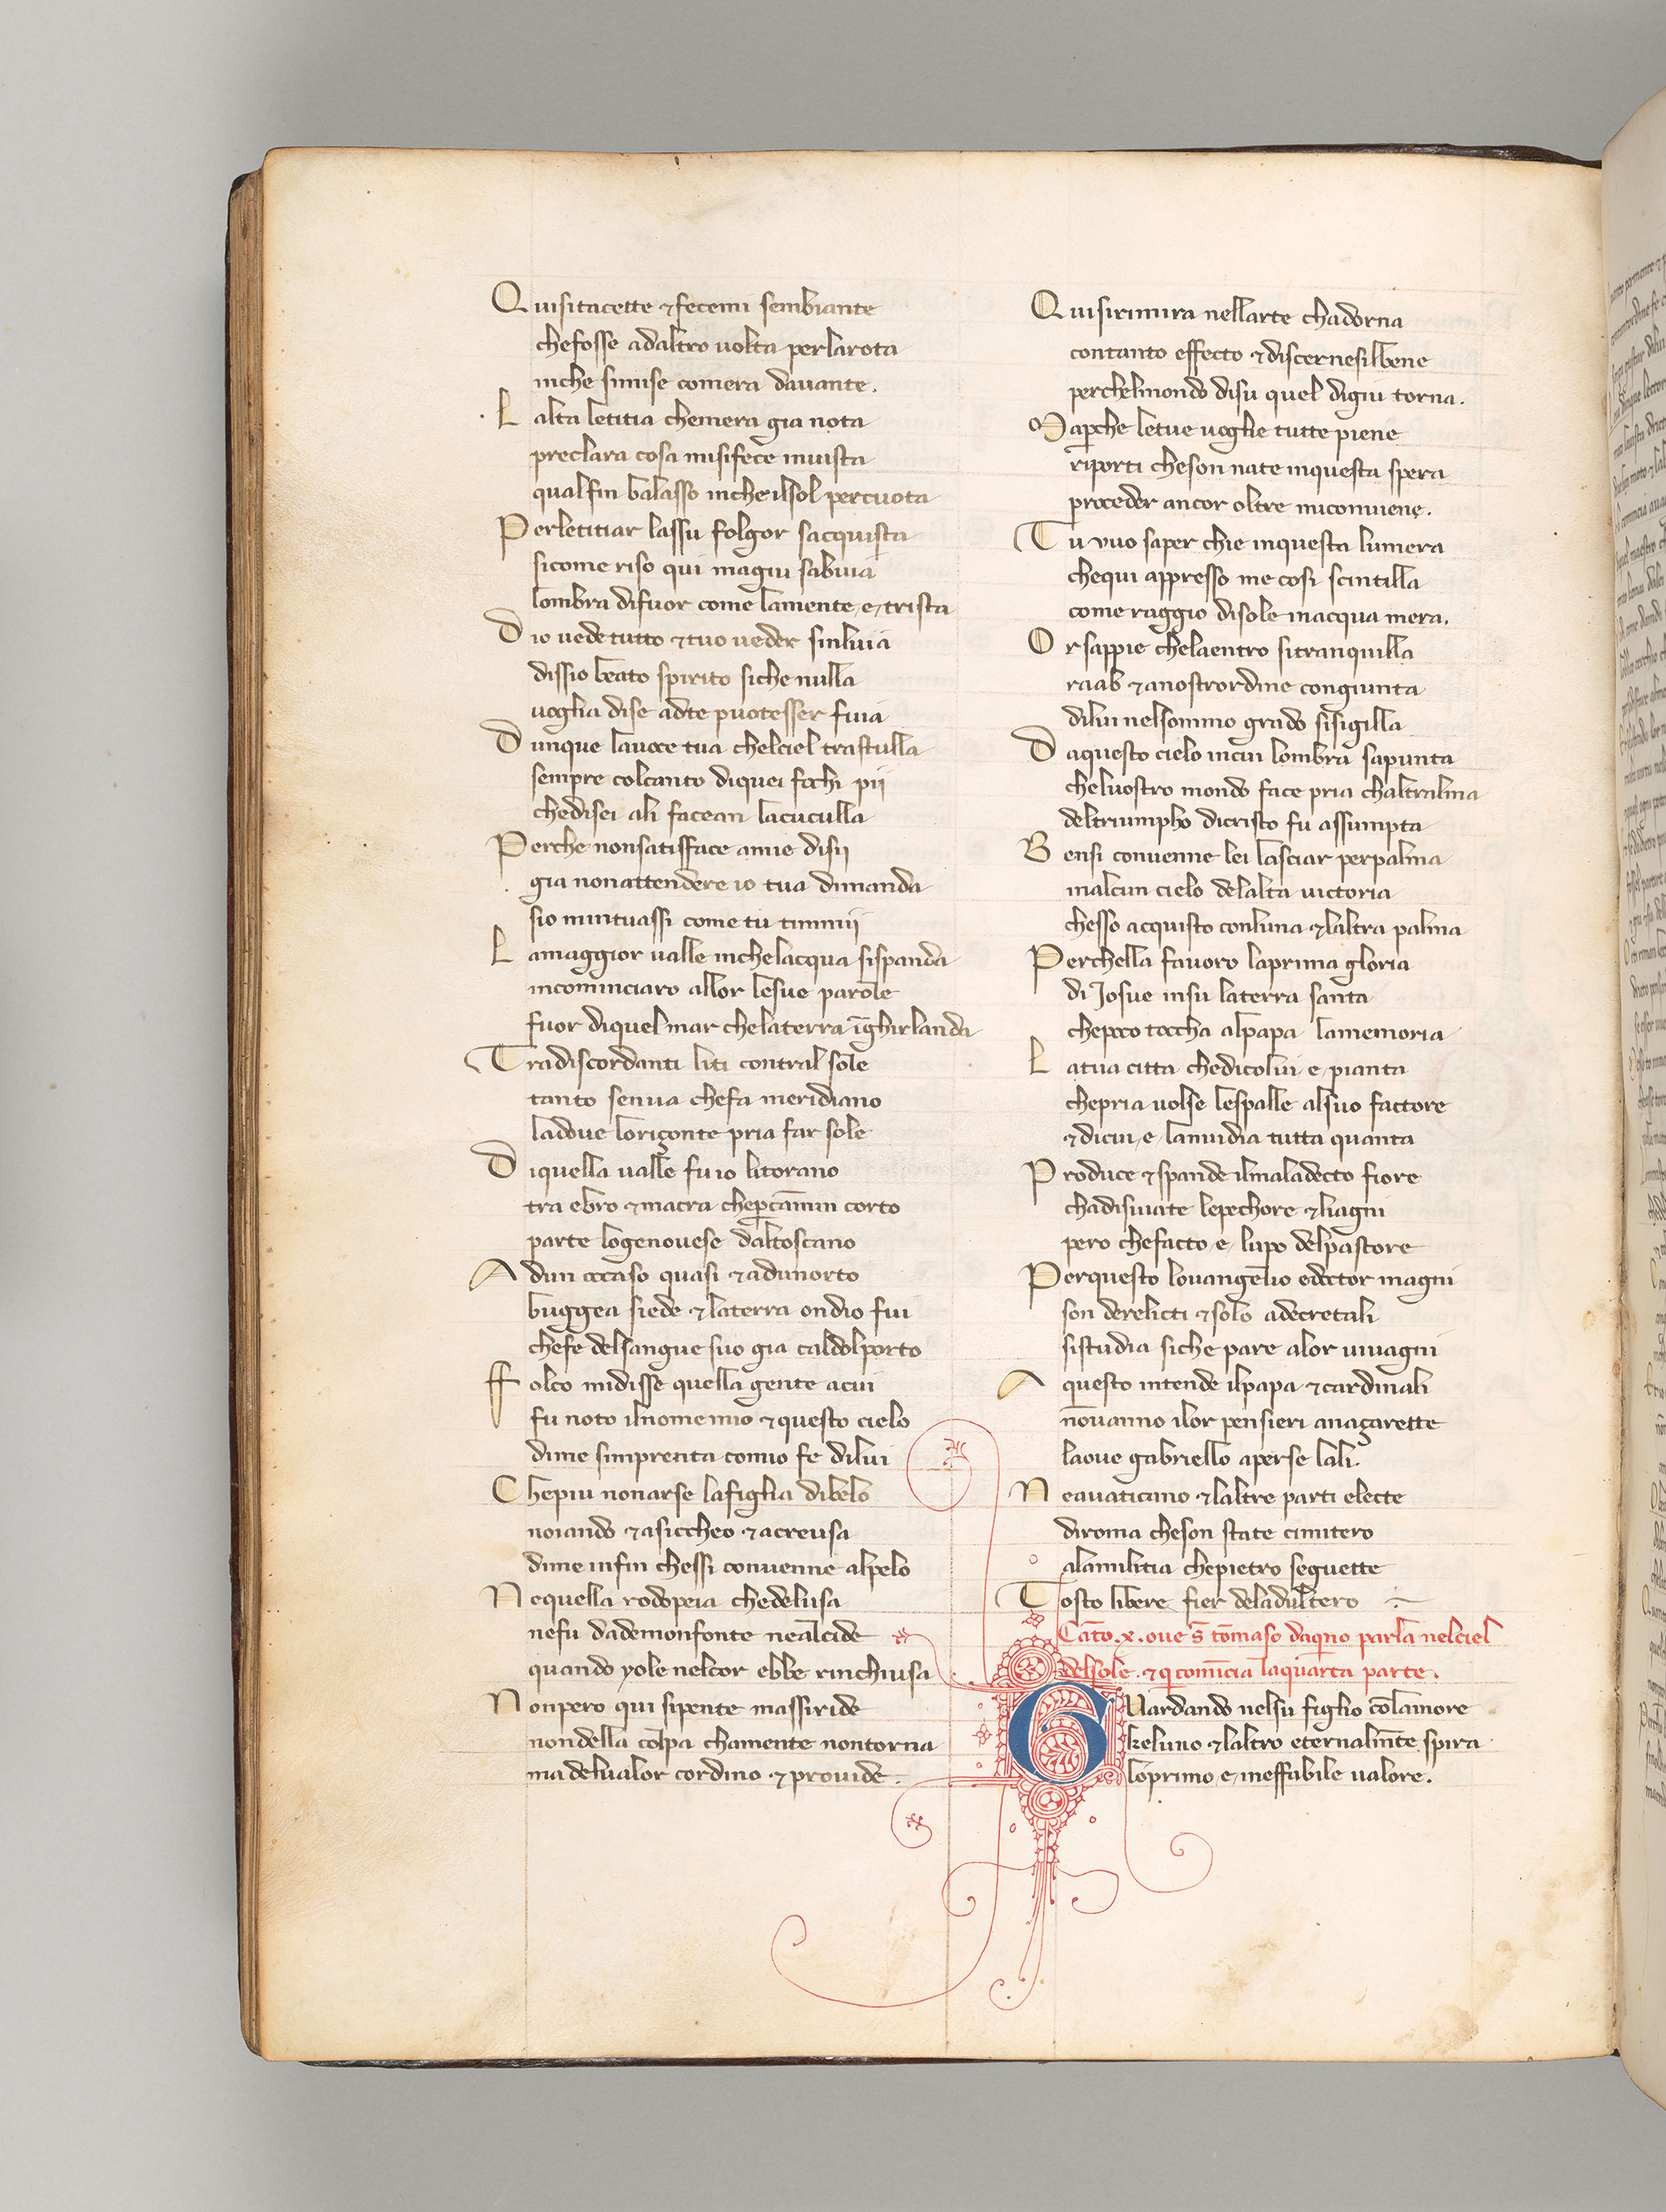 Quisitacette ⁊fecemi sembiante
chefosse adaltro uolta perlarota
inche simise comera dauante.
Lalta letitia chemera gia nota
preclara cosa misifece inuista
qualfin balasso incheilsol percuota
Perletitiar lassu folgor sacquista
sicome riso qui magiu sabuia
lombra difuor come lamente e trista
Dio uede tutto ⁊tuo ueder sinluia
dissio beato spirito siche nulla
uoglia dise adte puotesser fuia
Dunque lauoce tua chelciel trastulla
sempre colcanto diquei fochi pij
chedisei ali facean lacuculla
Perche nonsatisface amie disij
gia nonattendere io tua dimanda
sio mintuassi come tu timmij
Lamaggior ualle inchelacqua sispanda
incominciaro allor lesue parole
fuor diquel mar chelaterra īghirlanda
Tradiscordanti liti contral sole
tanto senua chefa meridiano
ladoue loriçonte pria far sole
Diquella ualle fu io litorano
tra ebro ⁊macra chepcāmin corto
parte logenouese daltoscano
Adun occaso quasi ⁊adunorto
buggea siede ⁊laterra ondio fui
chefe delsangue suo gia caldolporto
Ffolco midisse quella gente acui
fu noto ilnome mio ⁊questo cielo
dime simprenta comio fe dilui
Chepiu nonarse lafiglia dibelo
noiando ⁊asiccheo ⁊acreusa
dime infin chessi conuenne alpelo
Nequella rodopeia chedelusa
nefu dademonfonte nealcide
quando yole nelcor ebbe rinchiusa
Nonpero qui sipente massiride
nondella colpa chamente nontorna
ma delualor cordino ⁊prouide.
Quisirimira nellarte chadorna
contanto effecto ⁊discernesilbene
perchelmondo disu quel digiu torna.
Mapche letue uoglie tutte piene
riporti cheson nate inquesta spera
proceder ancor oltre miconuiene.
Tu vuo saper chie inquesta lumera
chequi appresso me cosi scintilla
come raggio disole inacqua mera.
Or sappie chelaentro sitranquilla
raab ⁊anostrordine congiunta
dilui nelsommo grado sisigilla
Daquesto cielo incui lombra sapunta
cheluostro mondo face pria chaltralma
deltriumpho dicristo fu assumpta
Bensi conuenne lei lasciar perpalma
inalcun cielo delalta uictoria
chesso acquisto conluna ⁊laltra palma
Perchella fauoro laprima gloria
di Josue insu laterra santa
chepoco toccha alpapa lamemoria
Latua citta chedicolui e pianta
chepria uolse lespalle alsuo factore
⁊dicui e lanuidia tutta quanta
Produce ⁊spande ilmaladecto fiore
chadisuiate lepechore ⁊liagni
pero chefacto e lupo delpastore
Perquesto louangelio edoctor magni
son derelicti ⁊solo adecretali
sistudia siche pare alor uiuagni
Aquesto intende ilpapa ⁊cardinali
nōuanno ilor pensieri anaçarette
laoue gabriello aperse lali.
Neauaticano ⁊laltre parti electe
diroma cheson state cimitero
alamilitia chepietro seguette
Tosto libere fier deladultero
Cāto .x. oue s̄ tōmaso daqino parla nelciel
delsole. ⁊q comīcia laquarta parte.
GUardando nelsu figlio cōlamore
keluno ⁊laltro eternalmēte spira
loprimo e ineffabile ualore.